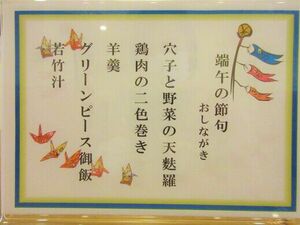 端午の節句
おしながき
穴子と野菜の天麩羅
鶏肉の二色巻き
羊羹
グリーンピース御飯
若竹汁